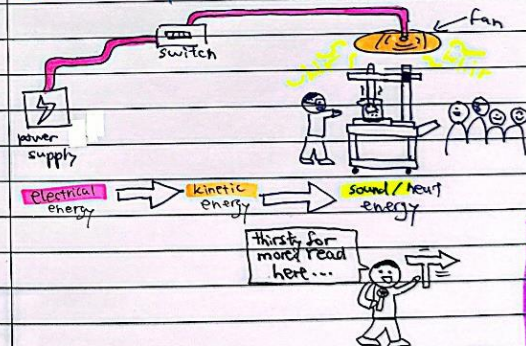 fan
switch
power
supply
electrical
energy
kinetic
energy
sound/heat
energy
thirsty for
more? read
here...